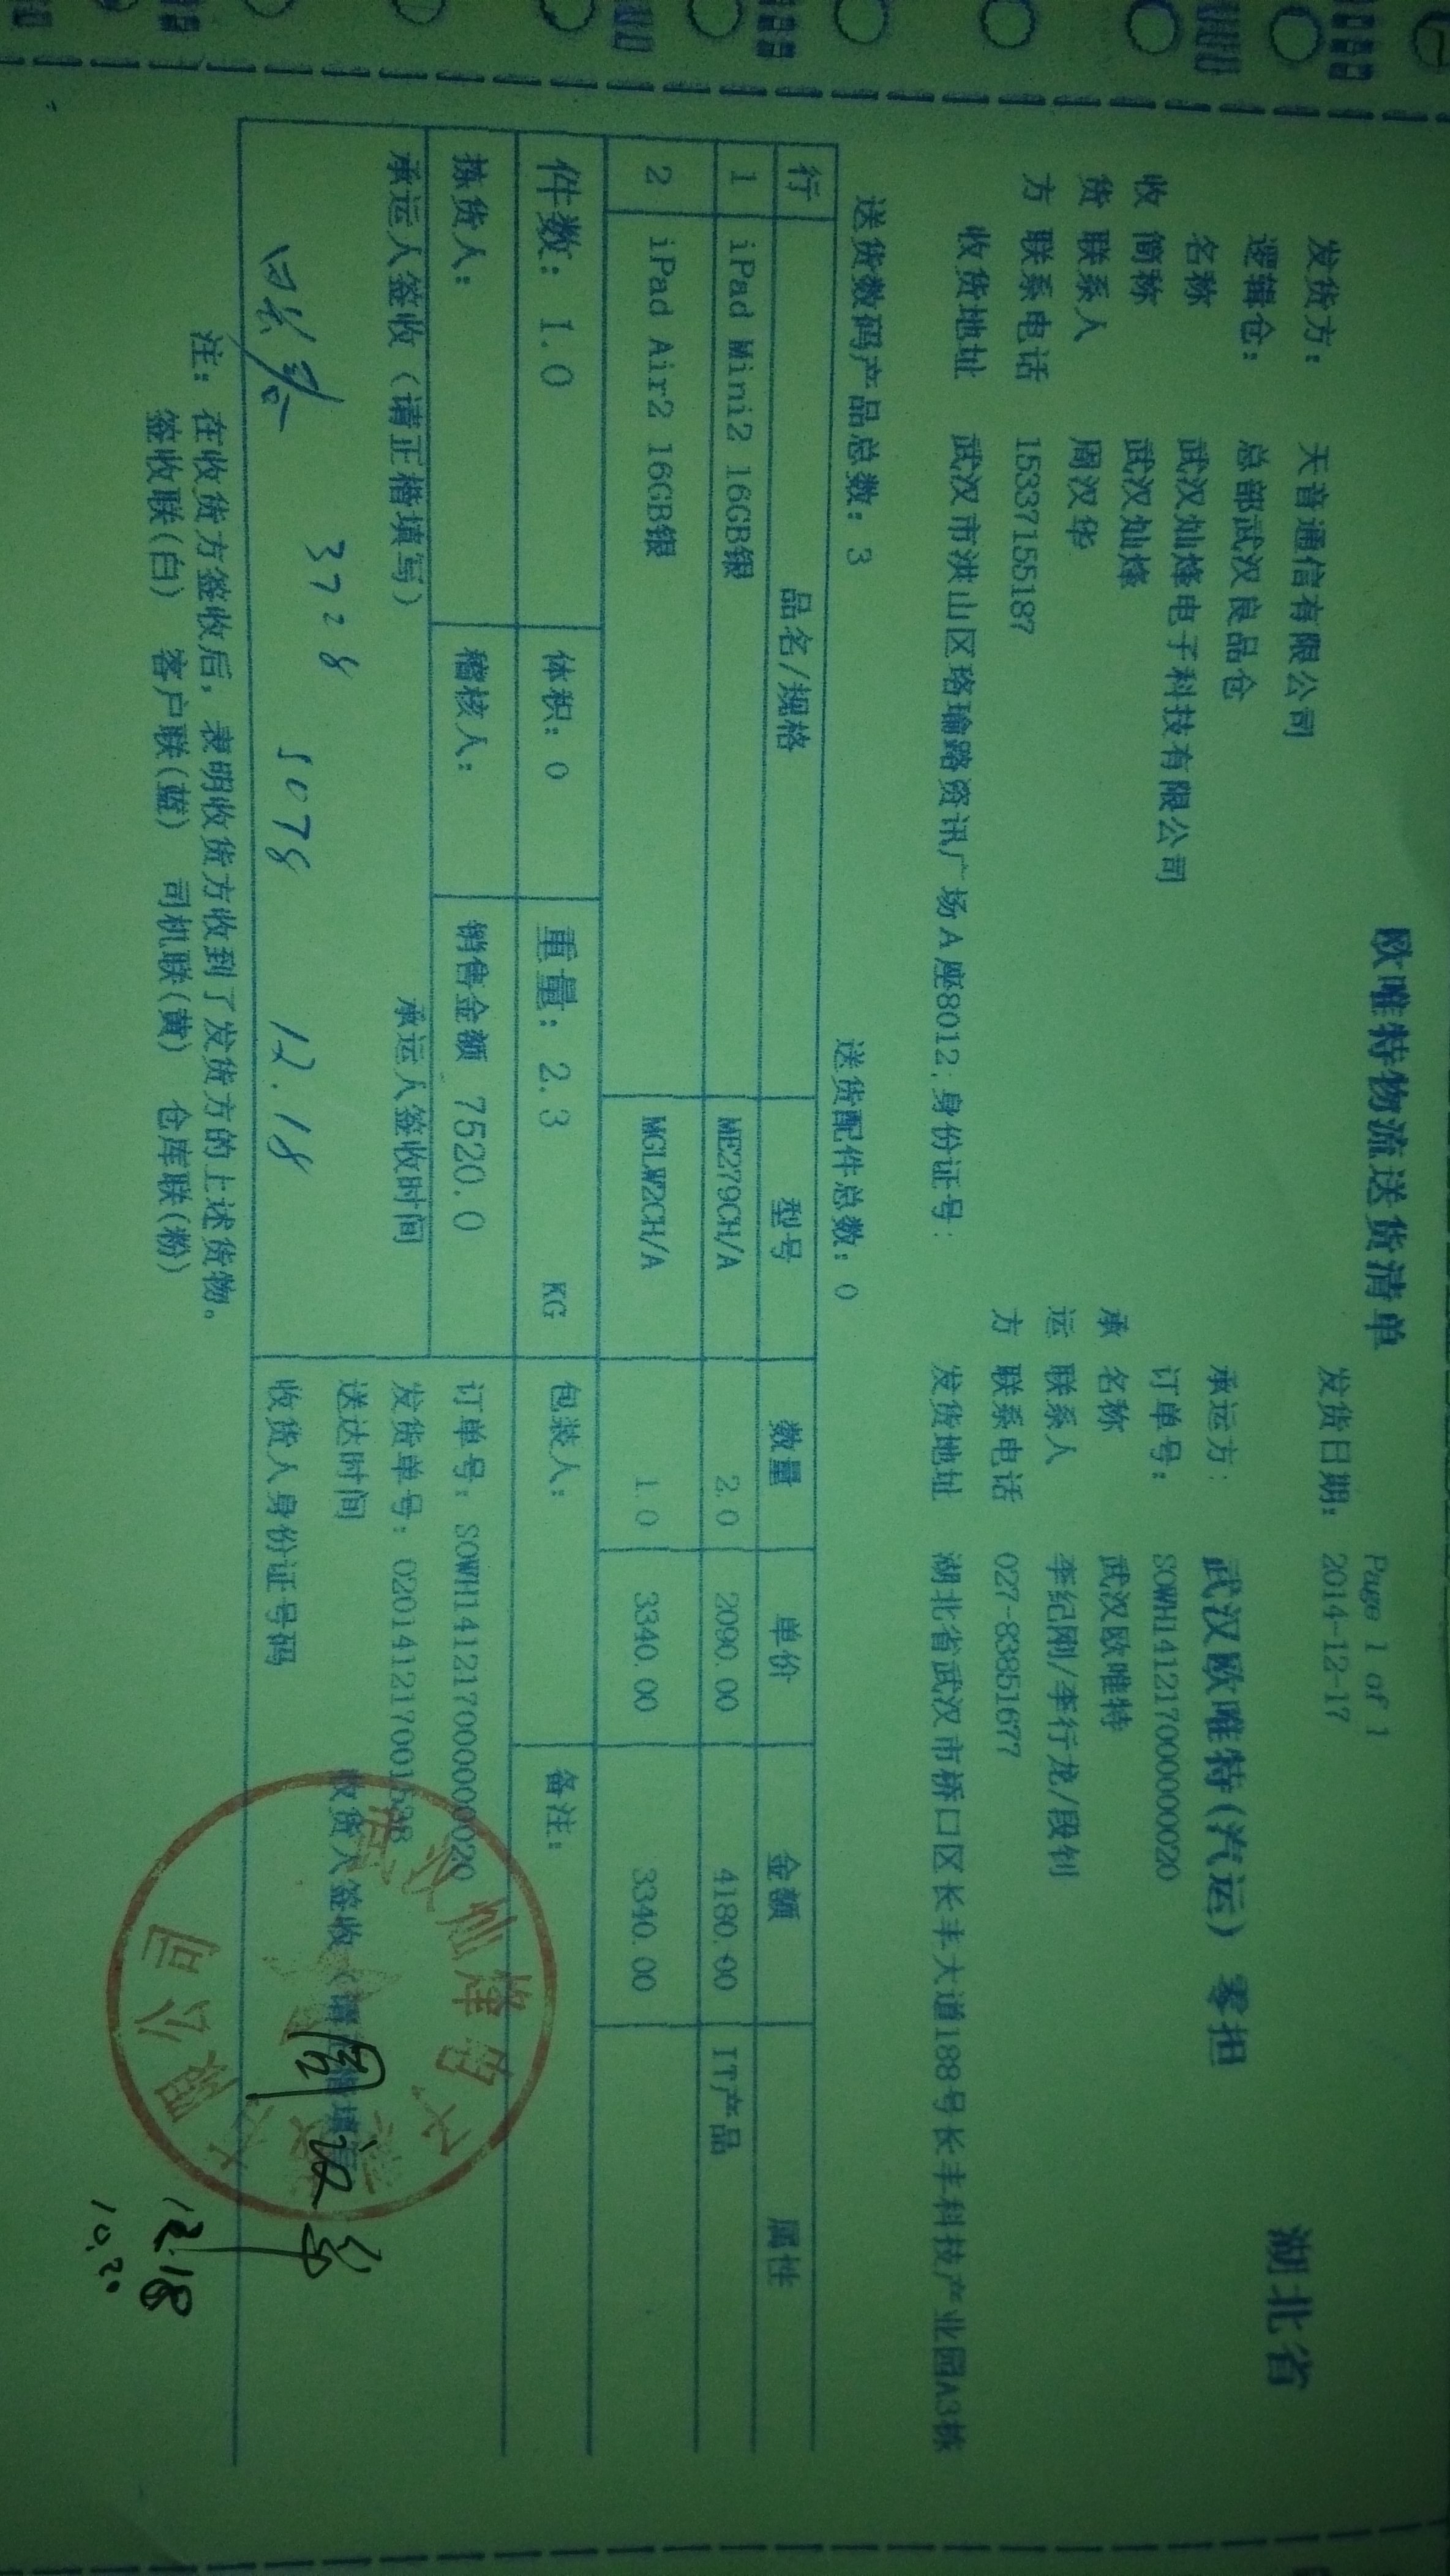 欧唯特物流送货清单
Page 1 of 1
湖北省
发货方: 天音通信有限公司
发货日期: 2014-12-17
逻辑仓: 总部武汉良品仓
承运方: 武汉欧唯特(汽运) 零担
名称 武汉灿烽电子科技有限公司
订单号: SOWH141217000000020
收 简称 武汉灿烽
承 名称 武汉欧唯特
货 联系人 周汉华
运 联系人 李纪刚/李行龙/段钊
方 联系电话 15337155187
方 联系电话 027-83851677
收货地址 武汉市洪山区珞瑜路资讯广场A座8012,身份证号:
发货地址 湖北省武汉市桥口区长丰大道188号长丰科技产业园A3栋
送货数码产品总数: 3 送货配件总数: 0
行 品名/规格 型号 数量 单价 金额 属性
1 iPad Mini2 16GB银 ME279CH/A 2.0 2090.00 4180.00 IT产品
2 iPad Air2 16GB银 MGLW2CH/A 1.0 3340.00 3340.00
件数: 1.0 体积: 0 重量: 2.3 KG 包装人: 备注:
拣货人: 稽核人: 销售金额 7520.0 订单号: SOWH141217000000020
承运人签收 (请正楷填写) 承运人签收时间 发货单号:
送达时间 收货人签收
3728 5078 12.18
收货人身份证号码
周汉华
12.18
10:20
注: 在收货方签收后, 表明收货方收到了发货方的上述货物。
签收联(白) 客户联(蓝) 司机联(黄) 仓库联(粉)